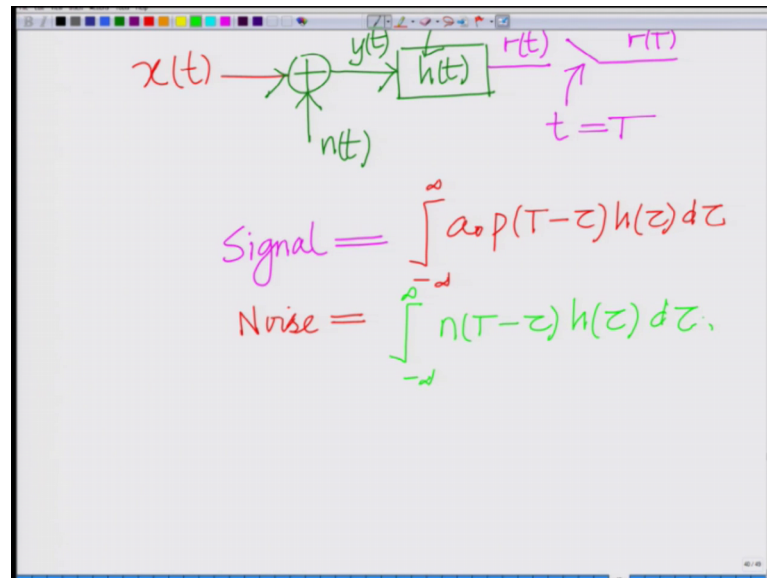 x(t) y(t) h(t) r(t) r(T)
n(t) t = T
Signal = ∫_{-∞}^{∞} a₀ p(T-τ) h(τ) dτ
Noise = ∫_{-∞}^{∞} n(T-τ) h(τ) dτ.